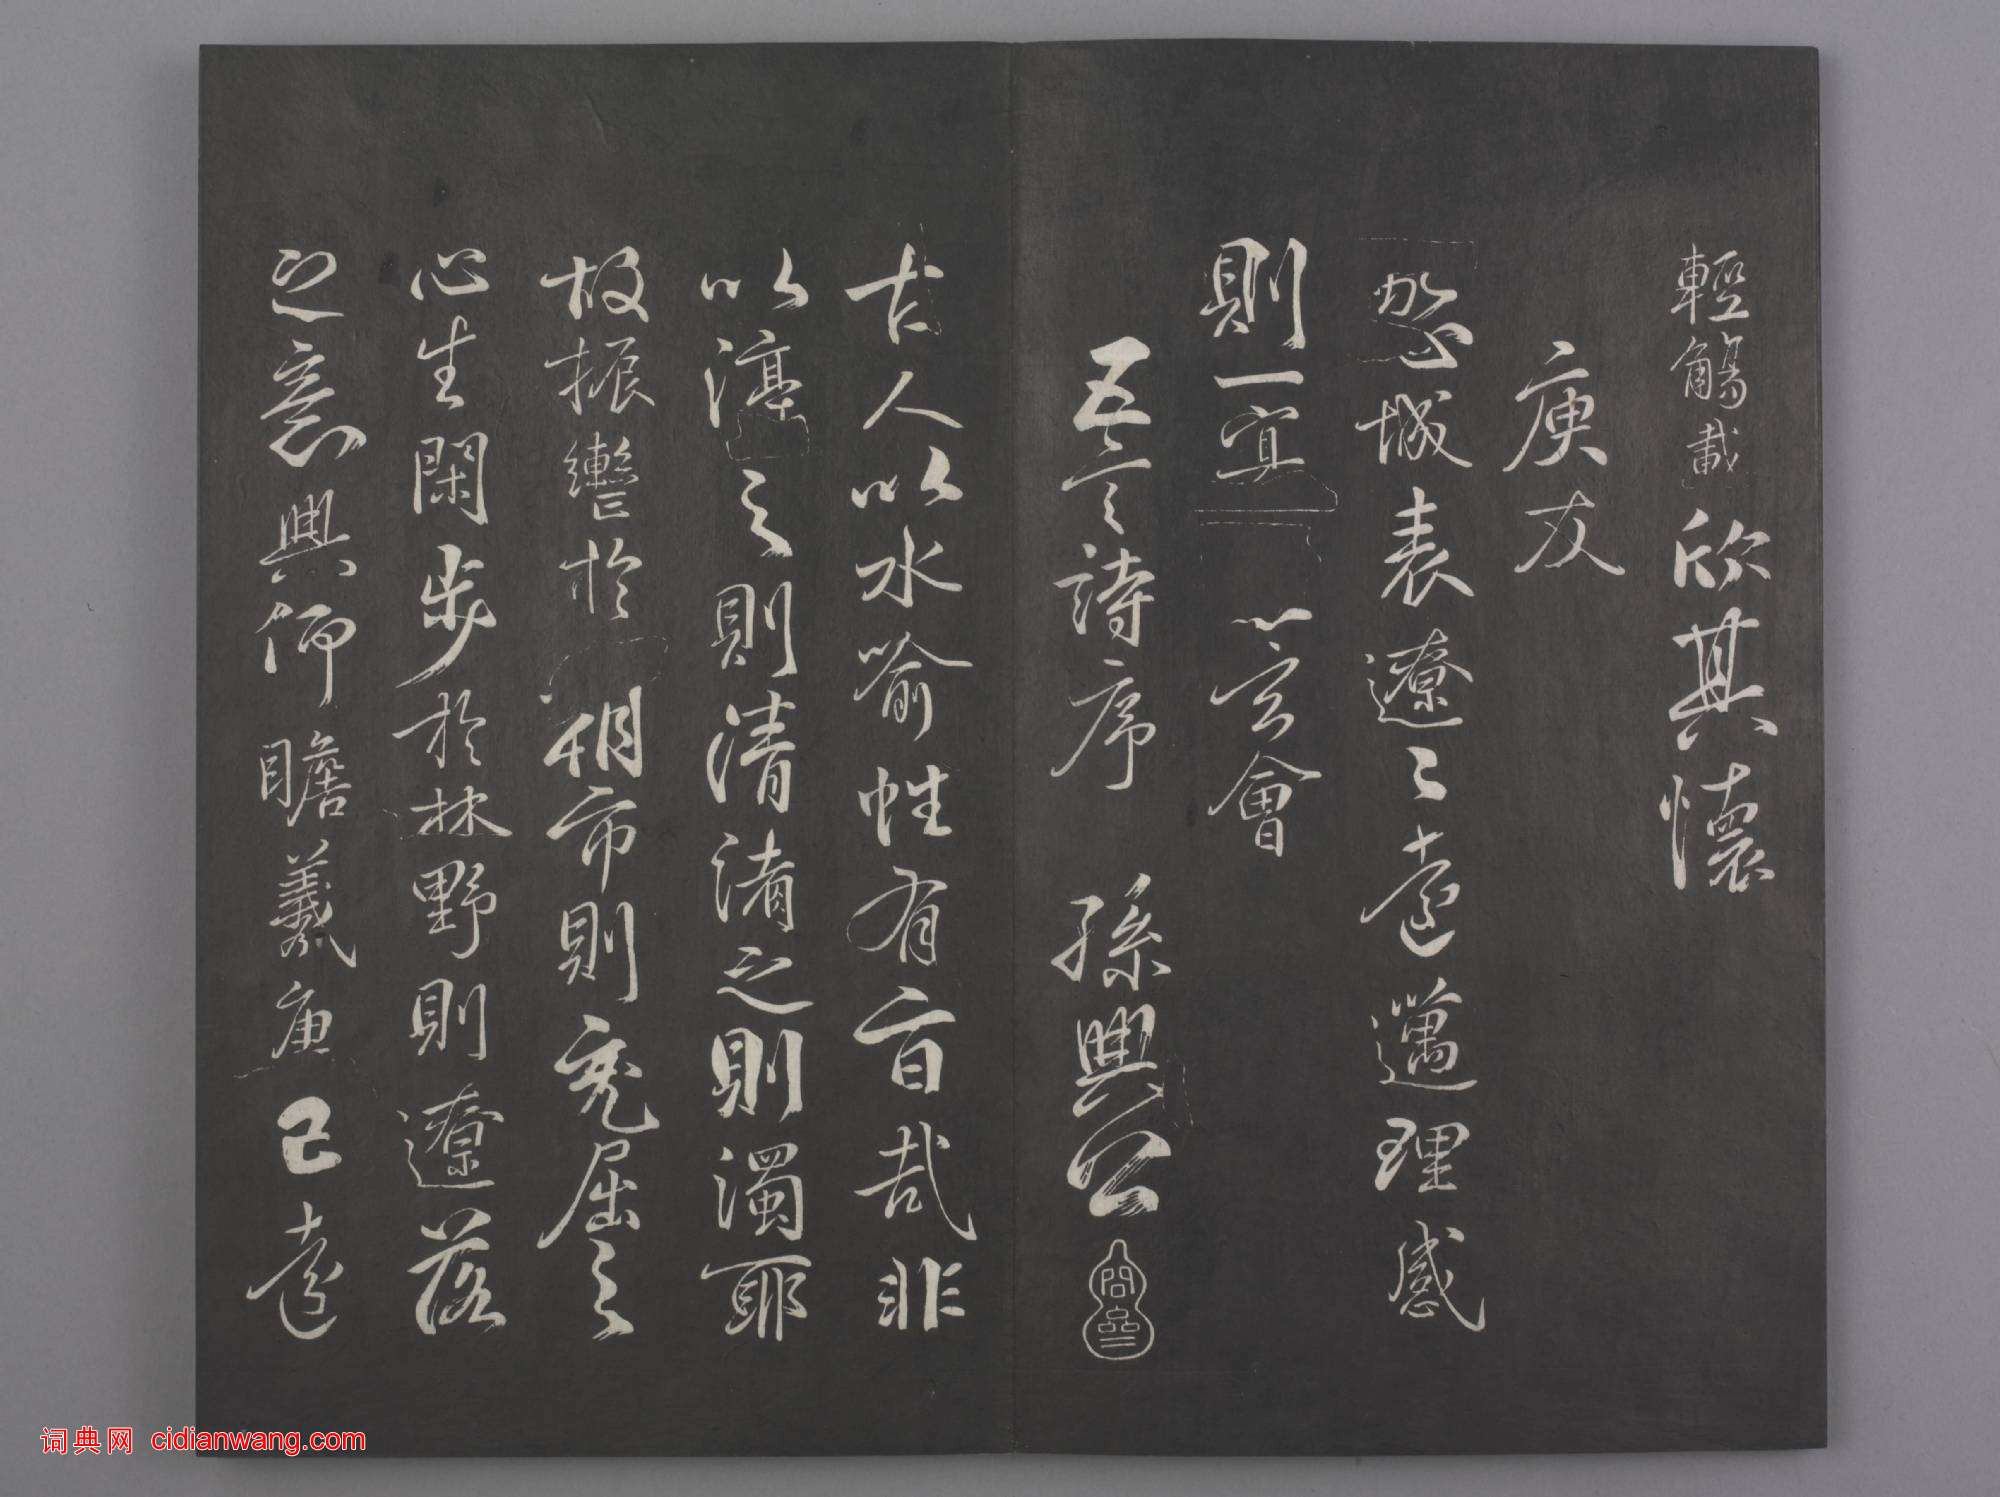 輕觴載欣其懷
庾友
城表遼〻遠邁理感
則一宜玄會
五言詩序 孫興公
古人以水喻性有旨哉非
以渟之則清淆之則濁耶
故振轡於朝市則充屈之
心生閑步於林野則遼落
之意興仰瞻羲唐已遠
词典网 cidianwang.com